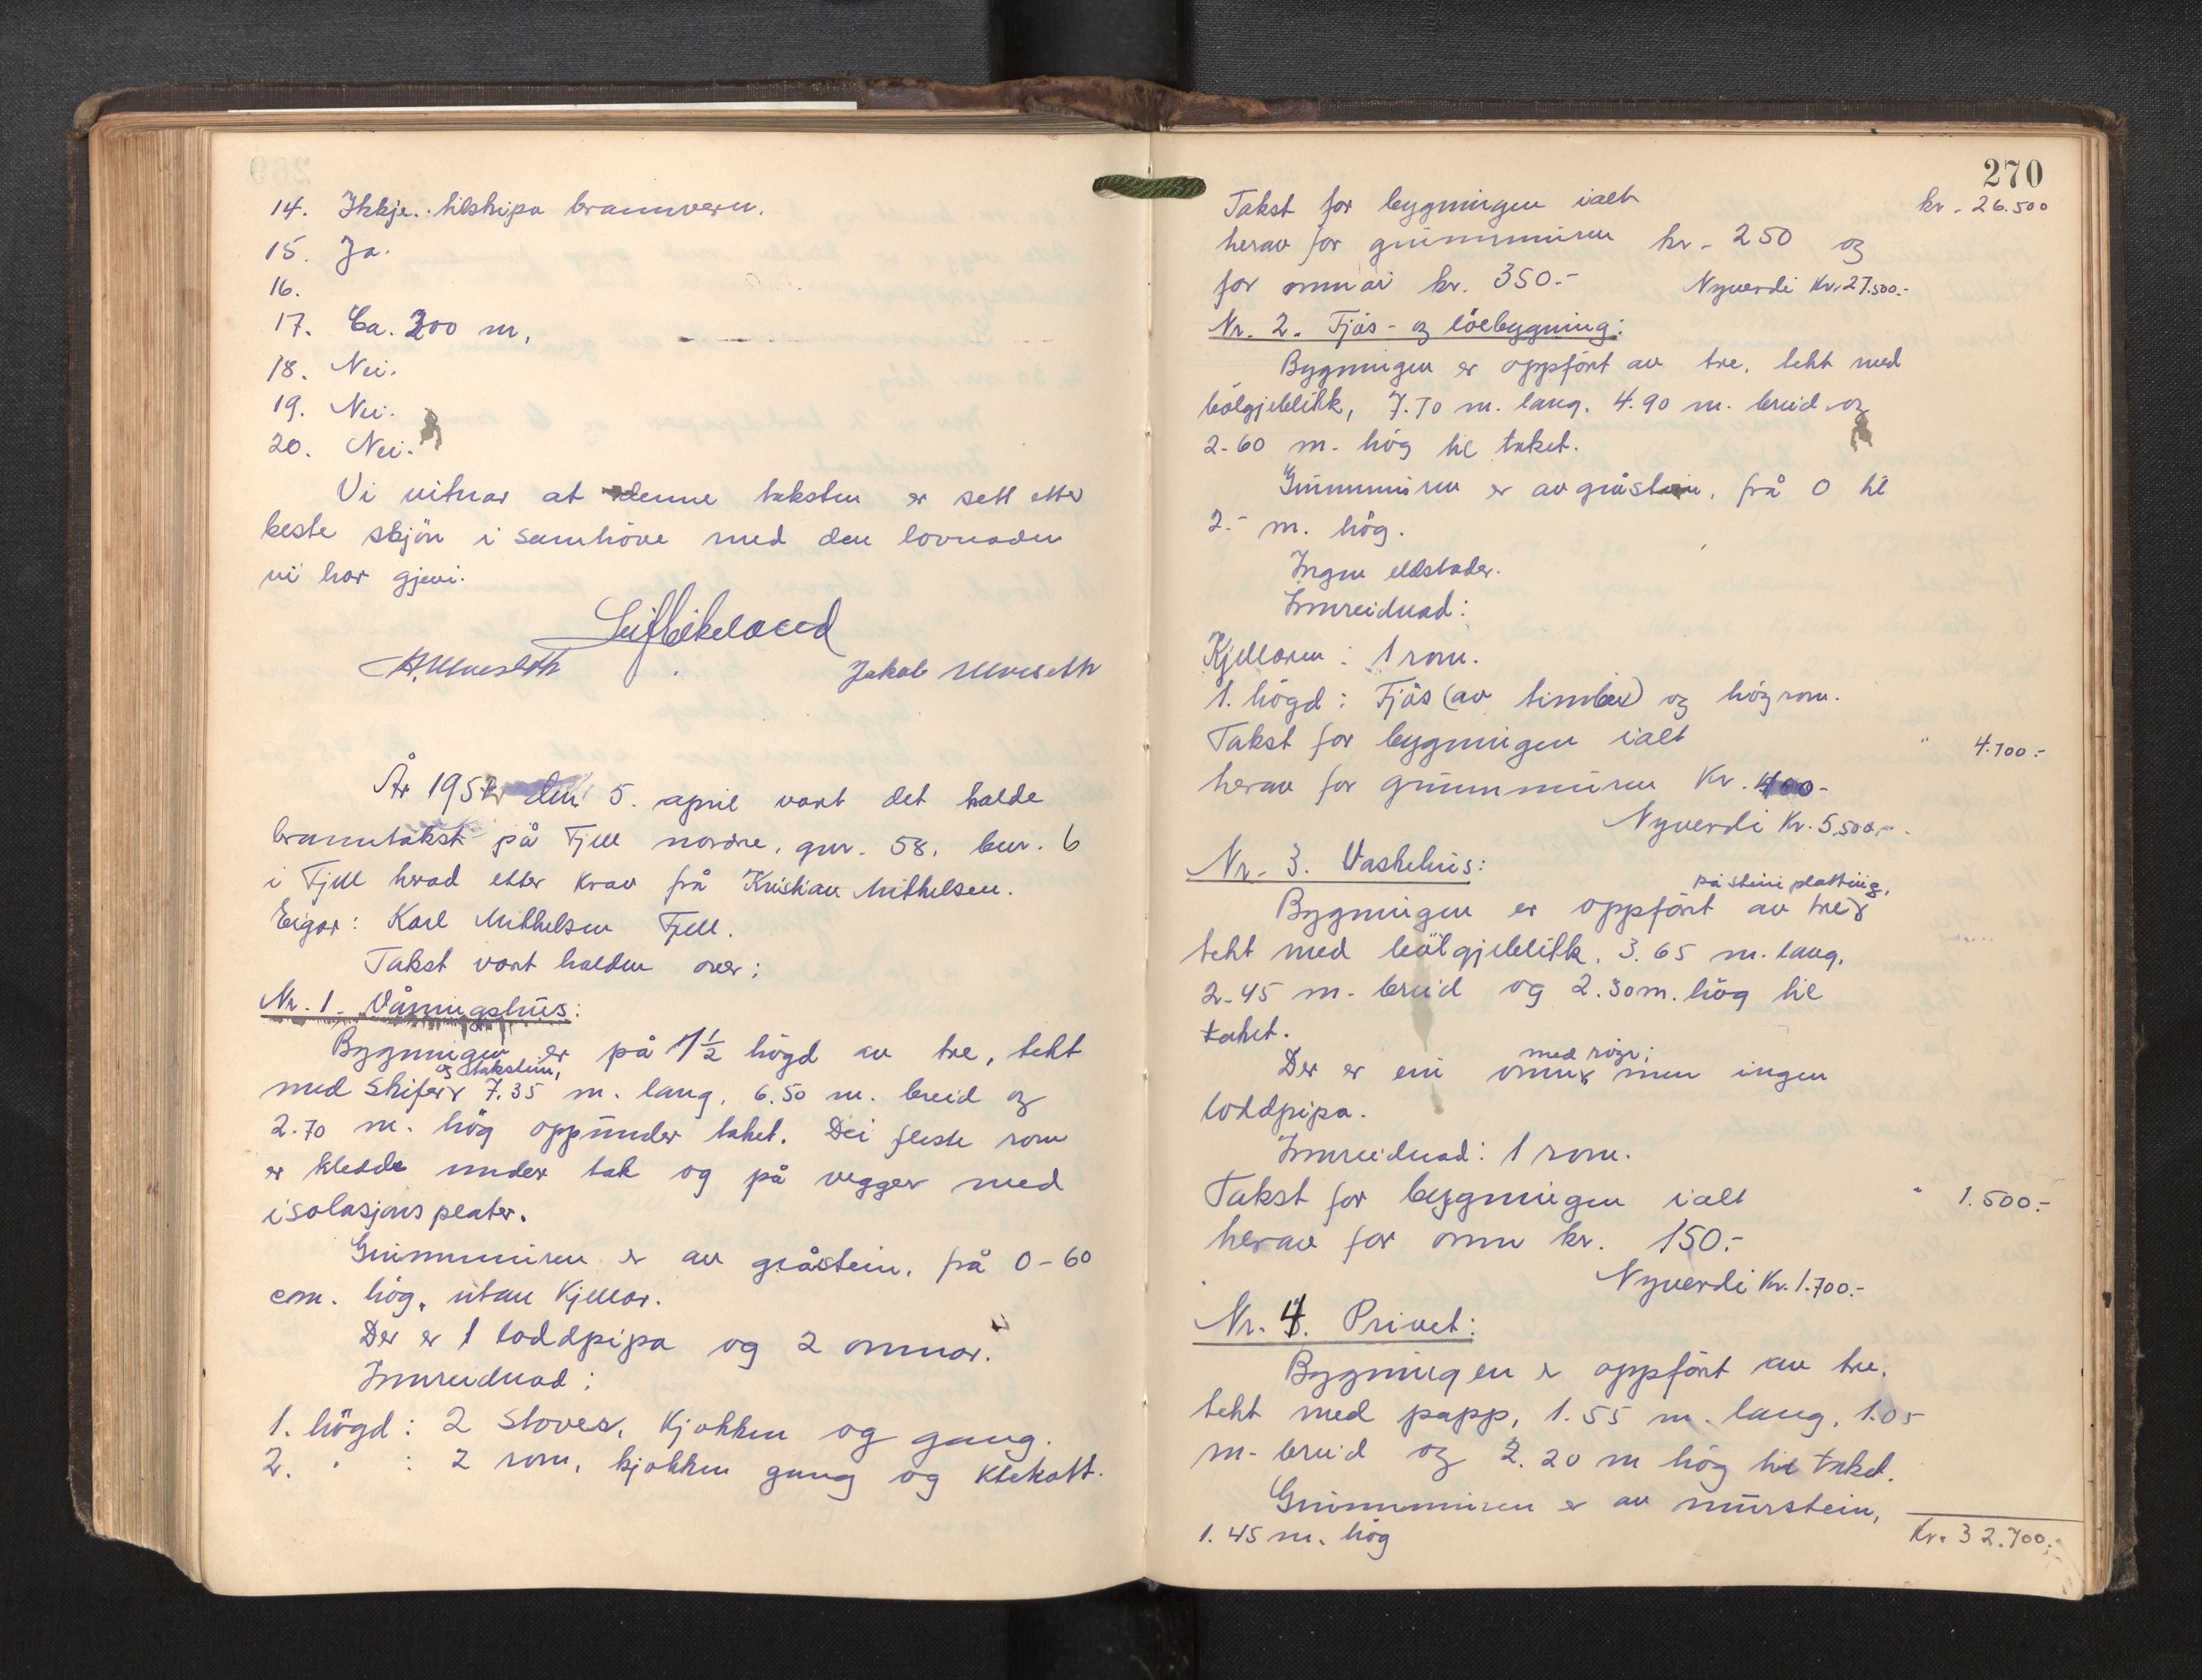 14. Ikkje tilskipa brannvern.
15. Ja.
16.
17. Ca. 300 m,
18. Nei.
19. Nei.
20. Nei.
Vi vitnar at denne taksten er sett etter
beste skjön i samhöve med den lovnaden
vi har gjevi.
Jakob Ulveseth
År 1952 den 5. april vart det halde
branntakst på Fjell nordre, gnr. 58, bnr. 6
i Fjell herad etter krav frå Kristian Mikkelsen.
Eigar: Karl Mikkelsen Fjell.
Takst vart halden over:
Nr. 1. Våningshus:
Bygningen er på 1½ högd av tre, tekt
og takstein,
med skifer 7.35 m. lang, 6.50 m. breid og
2.70 m. hög oppunder taket. Dei fleste rom
er kledde under tak og på vegger med
isolasjonsplater.
Grunnmuren er av gråstein, frå 0-60
cm. hög, utan kjellar.
Der er 1 loddpipa og 2 omnar.
Innreidnad:
1. högd: 2 stover, kjökken og gang.
2. " : 2 rom, kjökken gang og klekott.
270
Takst for bygningen ialt kr. 26.500
herav for grunnmuren kr. 250 og
for omnar kr. 350.- Nyverdi Kr. 27.500.-
Nr. 2. Fjös- og löebygning:
Bygningen er oppfört av tre, tekt med
bölgjeblikk, 7.70 m. lang, 4.90 m. breid og
2.60 m. hög til taket.
Grunnmuren er av gråstein, frå 0 til
2.- m. hög.
Ingen eldstader.
Innreidnad:
Kjellaren: 1 rom.
1. högd: Fjös (av timber) og högrom.
Takst for bygningen ialt " 4.700.-
herav for grunnmuren Kr. 400.-
Nyverdi Kr. 5.500.-
Nr. 3. Vaskehus:
på stein platting,
Bygningen er oppfört av tre
tekt med bölgjeblikk, 3.65 m. lang,
2.45 m. breid og 2.30 m. hög til
taket.
med röyr;
Der er ein omn men ingen
loddpipa.
Innreidnad: 1 rom.
Takst for bygningen ialt " 1.500.-
herav for omn kr. 150.-
Nyverdi Kr. 1.700.-
Nr. 4. Privet:
Bygningen er oppfört av tre,
tekt med papp, 1.55 m. lang, 1.05
m. breid og 2.20 m hög til taket.
Grunnmuren er av murstein,
1.45 m. hög Kr. 32.700.-